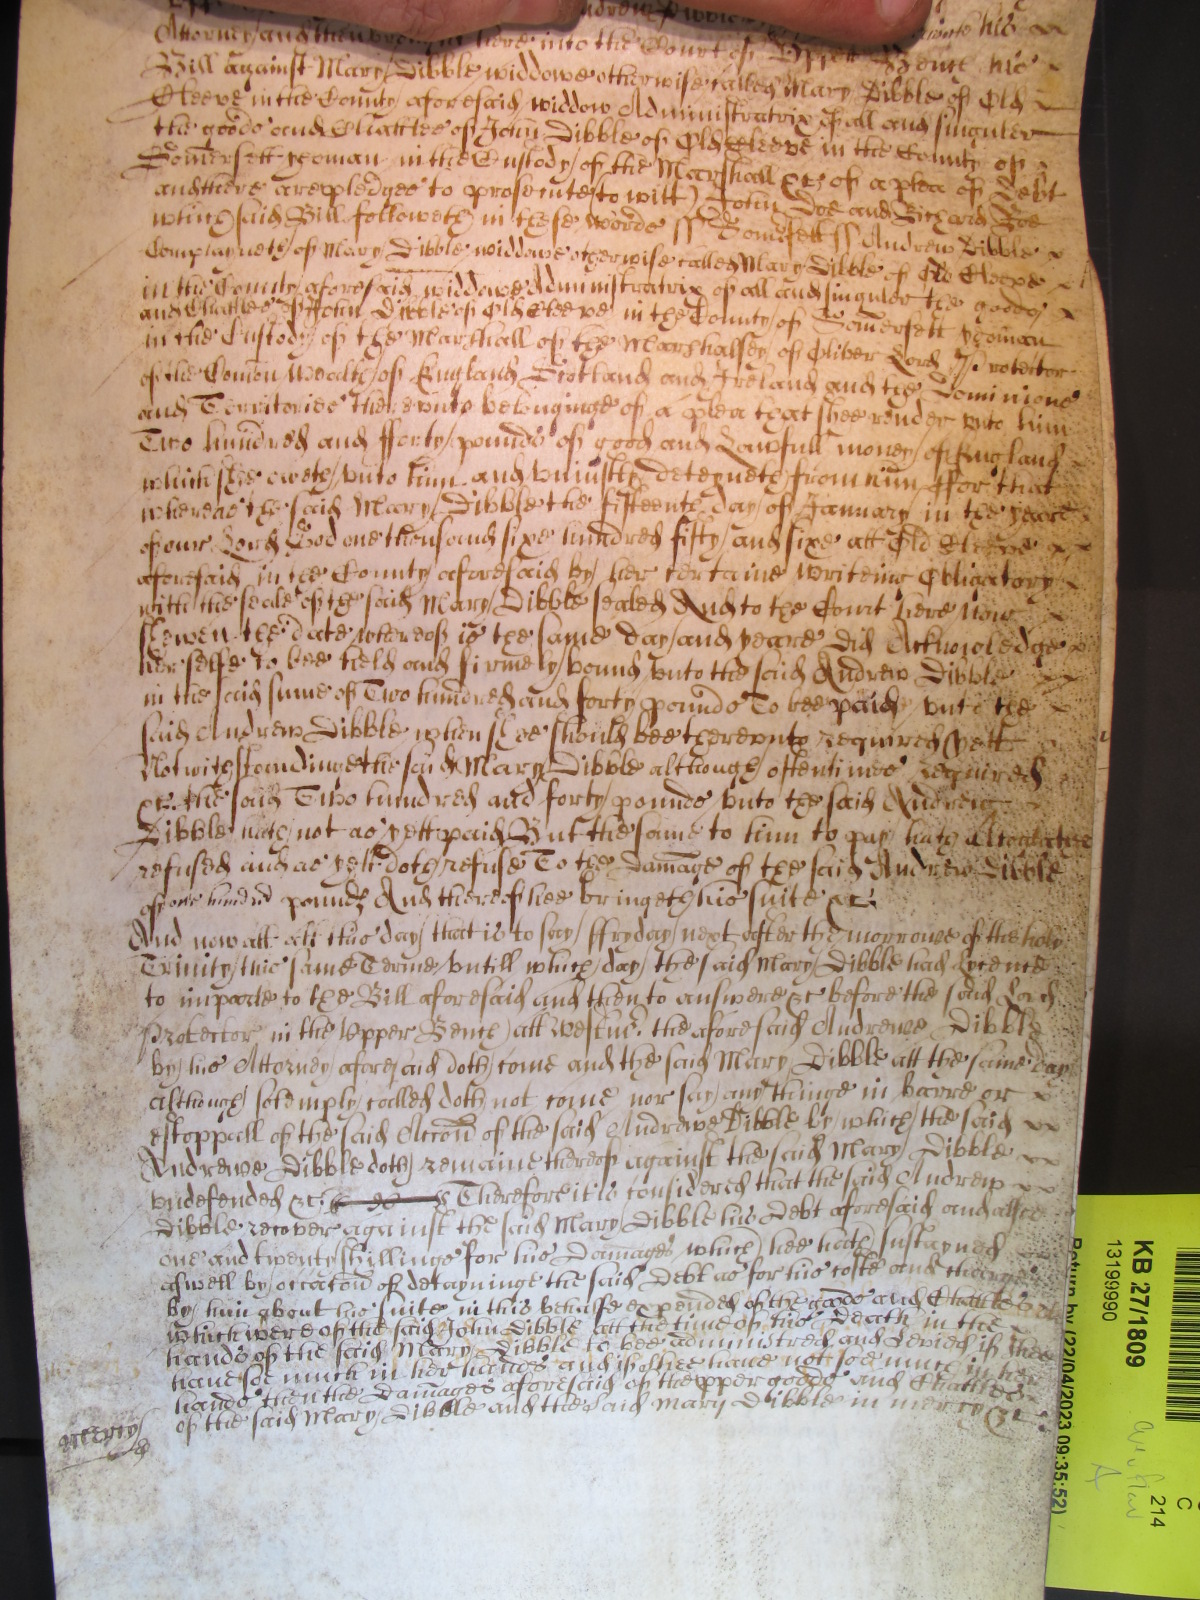 Andrew Dibble his
Attorney and then brought here into the Court of Upper Bench his
Bill against Mary Dibble widdowe otherwise called Mary Dibble of Old
Cleeve in the County aforesaid widdow Administratrix of all and singuler
the goods and Chattles of John Dibble of Old Cleeve in the County of
Somersett yeoman in the Custody of the Marshall &c of a plea of Debt
and there are pledges to prosecute to witt John Doe and Richard Roe
which said Bill followeth in these words ss Somersett ss Andrew Dibble
Complayneth of Mary Dibble widdowe otherwise called Mary Dibble of Old Cleeve
in the County aforesaid widdowe Administratrix of all and singuler the goods
and Chattles of John Dibble of Old Cleeve in the County of Somersett yeoman
in the Custody of the Marshall of the Marshalsey of Oliver Lord Protector
of the Comon Wealth of England Scotland and Ireland and the Dominions
and Territories thereunto belonginge of a plea that shee render vnto him
Two hundred and fforty pounds of good and Lawfull money of England
which she oweth vnto him and vniustly deteyneth from him ffor that
whereas the said Mary Dibble the fifteenth day of January in the yeare
of our Lord God one thousand sixe hundred fifty and sixe att Old Cleeve
aforesaid in the County aforesaid by her certaine writeing Obligatory
with the seale of the said Mary Dibble sealed And to the Court here now
shewen the date whereof is the same day and yeare did Acknowledge
her selfe to bee held and firmely bound vnto the said Andrew Dibble
in the said sume of Two hundred and forty pounds To bee paid vnto the
said Andrew Dibble when shee should bee therevnto required Yett
Notwithstandinge the said Mary Dibble although oftentimes required
&c the said Two hundred and forty pounds vnto the said Andrew
Dibble hath not as yett paid But the same to him to pay hath Altogether
refused and as yett doth refuse To the damage of the said Andrew Dibble
of one hundred pounds And thereof hee bringeth his suite &c
And now att this day that is to say ffryday next after the morrowe of the holy
Trinity this same Terme vntill which day the said Mary Dibble had Lycence
to imparle to the Bill aforesaid and then to answere &c before the said Lord
Protector in the Vpper Bench att Westmr the aforesaid Andrewe Dibble
by his Attorney aforesaid doth come and the said Mary Dibble att the same day
although solemply called doth not come nor say any thinge in barre or
estoppall of the said Accon of the said Andrewe Dibble by which the said
Andrewe Dibble doth remaine thereof against the said Mary Dibble
vndefended &c Therefore it is considered that the said Andrew
Dibble recover against the said Mary Dibble his Debt aforesaid and alsoe
one and twenty shillings for his Damages which hee hath sustayned
aswell by occation of detayninge the said Debt as for his costs and charges
by him about his suite in this behalfe expended of the goods and Chattles
which were of the said John Dibble att the time of his Death in the
hands of the said Mary Dibble to bee administred and Levied if shee
have soe much in her hands and if shee have not soe much in her
hands then the Damages aforesaid of the pper goods and Chattles
of the said Mary Dibble and the said Mary Dibble in mercy &c
mercy
KB 27/1809
13199990
Return by (22/04/2023 09:35:52)
214
C
A